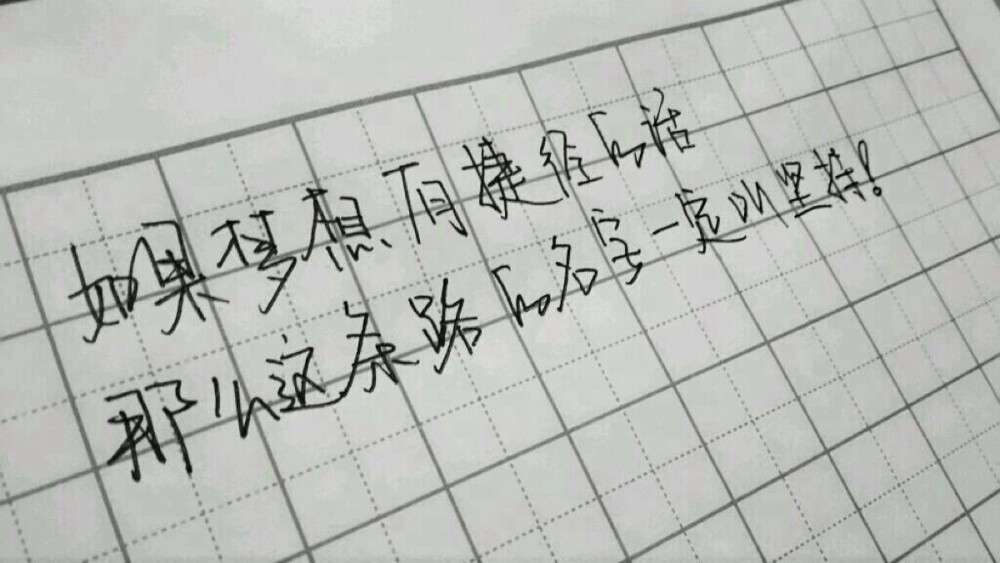 如果梦想有捷径的话
那么这条路的名字一定叫坚持!